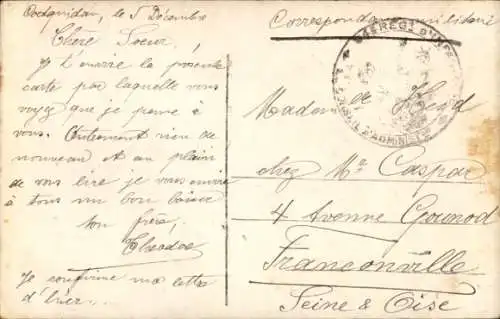 Coëtquidan, le 5 Décembre
Chère Soeur,
Je t'envoie la présente
carte par laquelle vous
voyez que je pense à
vous. Autrement rien de
nouveau et au plaisir
de vous lire je vous envoie
à tous un bon baiser
ton frère,
Je confirme ma lettre
d'hier..
Correspondance militaire
Madame
chez Mr Caspar
4 Avenue Gounod
Franconville
Seine & Oise